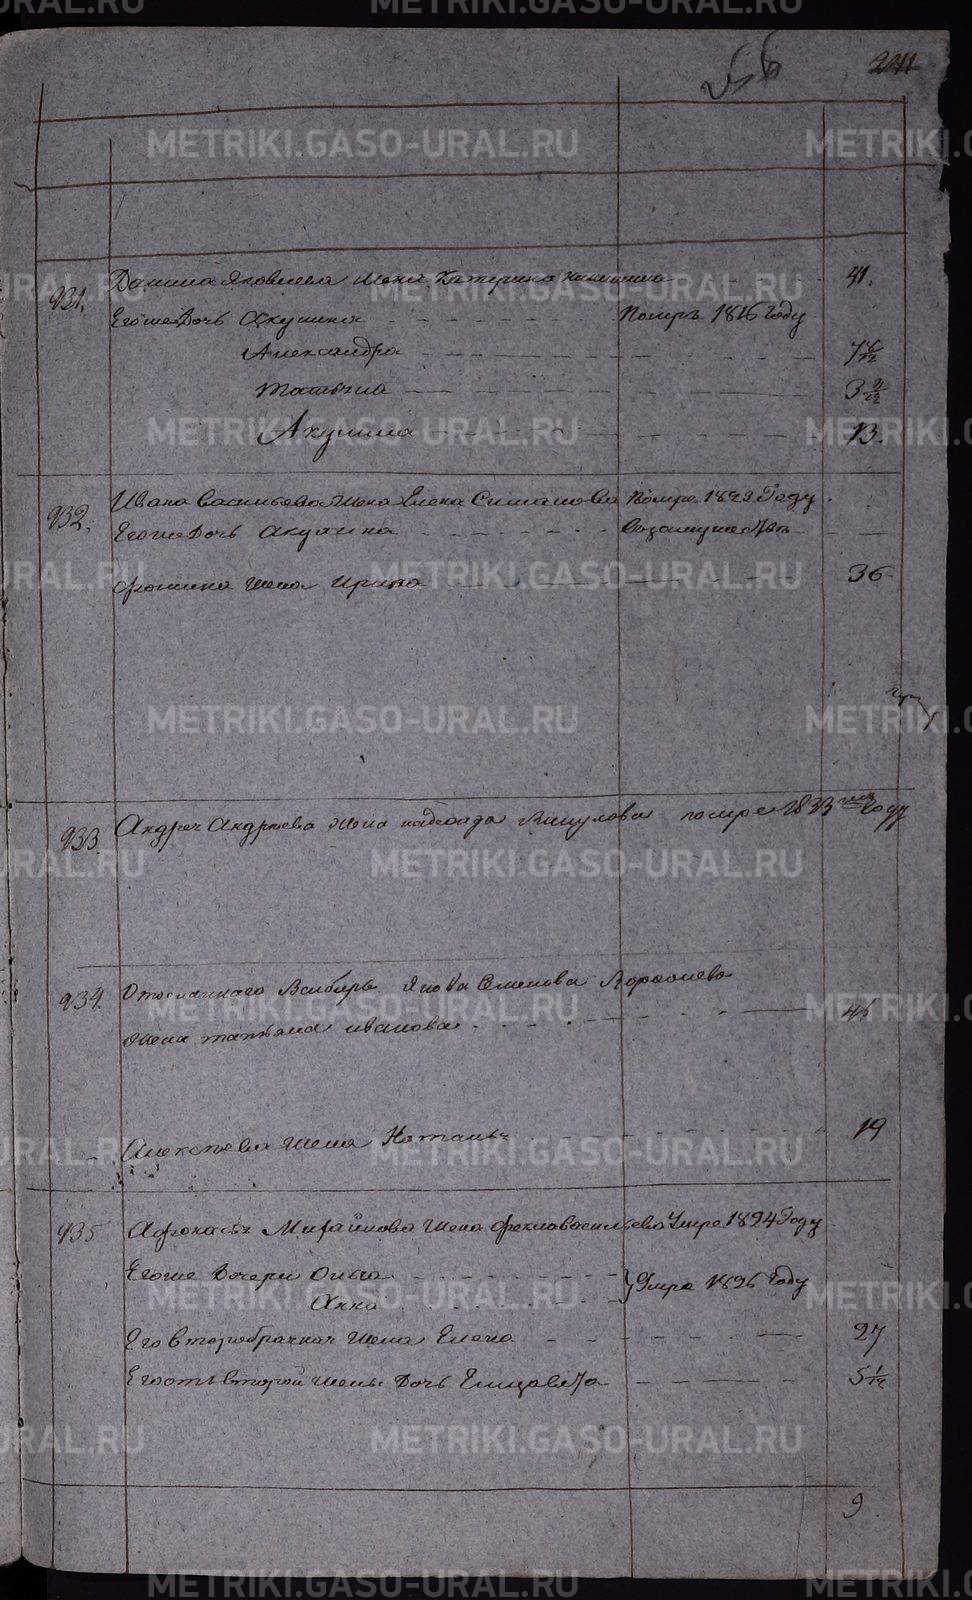 256
931.
Данила Яковлева жена Катерина 41.
Егоже Дочь Акулина Помръ 1816 Году
Александра 7 8/12
Татьяна 3 9/12
Акулина 13.
932.
Ивана Васильева жена Елена Симанова помре 1823 Году.
Егоже Дочь Акулина
жена Ирина 36
933.
Андреч Андреева жена надежда Викулова помре 1833 Году
934.
Отосланнаго Всибирь Якова Семенова
жена татьяна иванова 45
Алексеева жена Наталья 19
935
жена Фекла васильева Умре 1824 Году
Егоже Дочери Ольга
Анна Умре 1826 Году
Его второбрачная жена Елена 27
Егоотъ второй жены Дочь Елизавета 5 1/12
9
METRIKI.GASO-URAL.RU